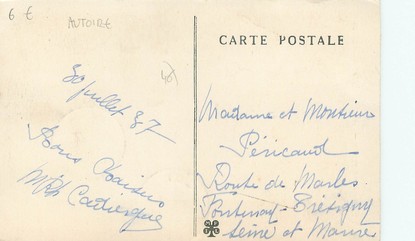 6 €
AUTOIRE
46
CARTE POSTALE
30 juillet 37
Bons baisers
Madame et Monsieur
Péricaud
Route de Marles
Fontenay-Trésigny
Seine et Marne